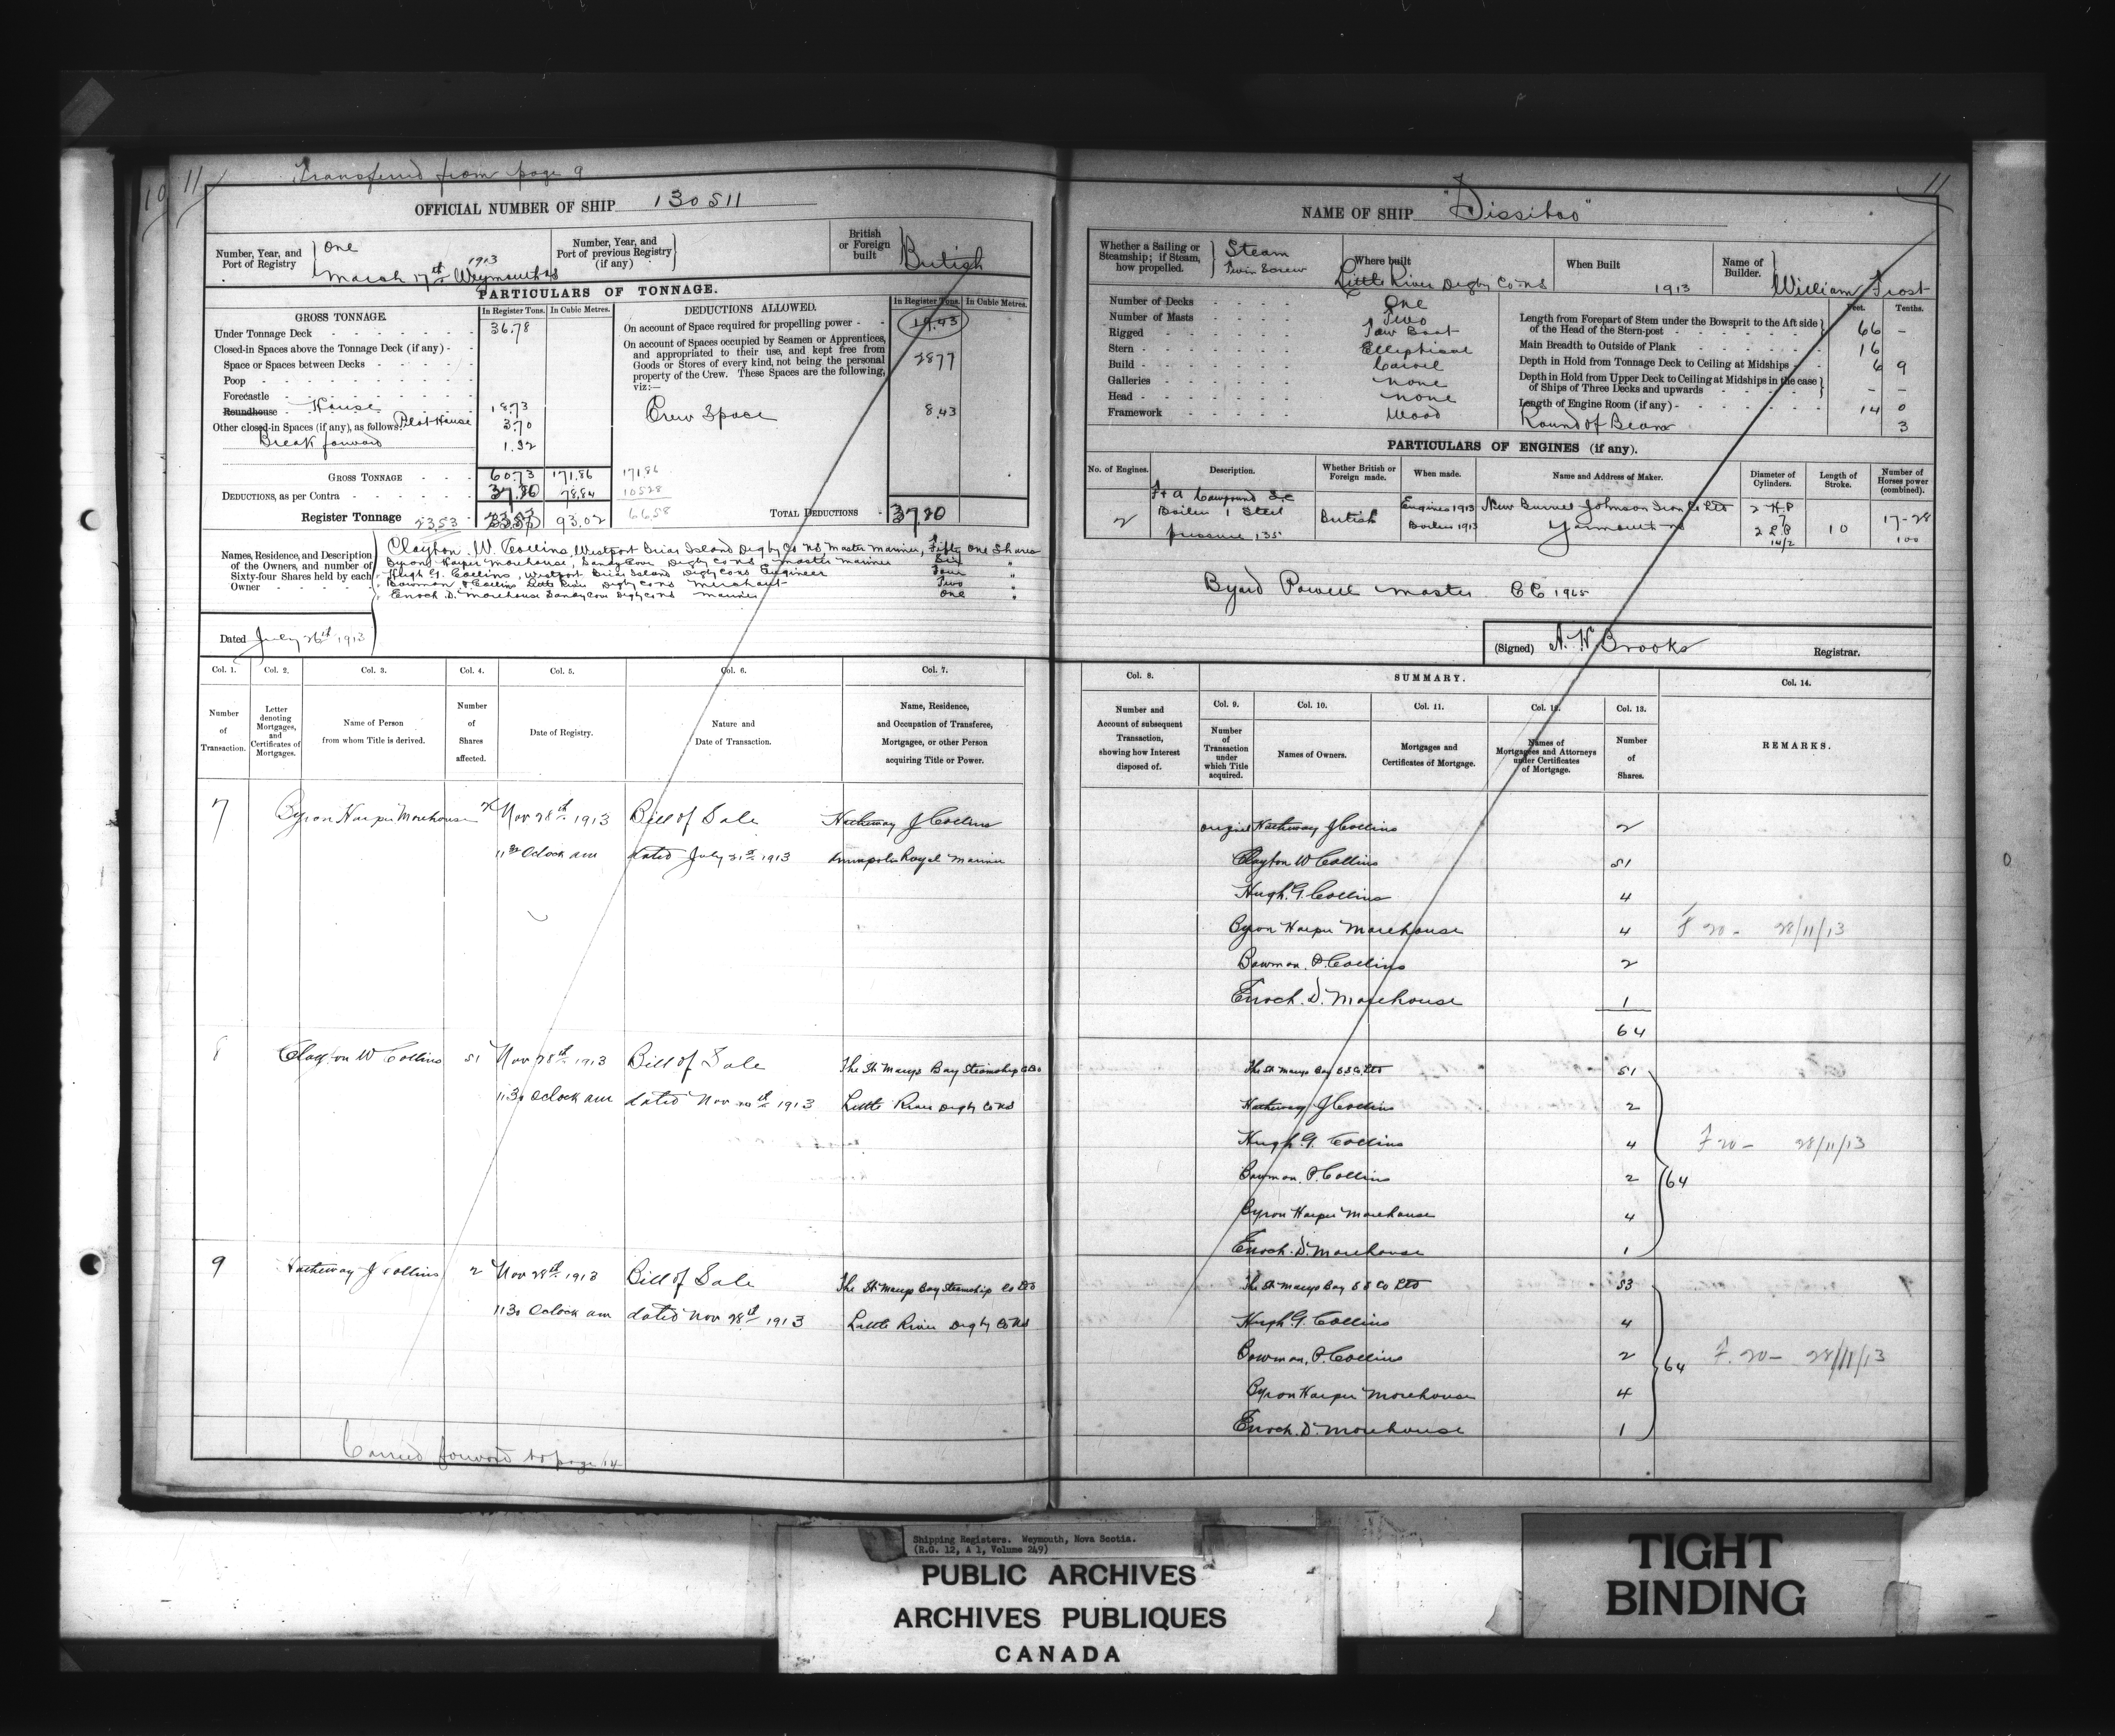 Transferred from page 9
10 11
11
OFFICIAL NUMBER OF SHIP 130511
NAME OF SHIP "Dissitoo"
Number, Year, and Port of Registry
One
1913
March 17th Weymouth NS
Number, Year, and Port of previous Registry (if any)
British or Foreign built
British
PARTICULARS OF TONNAGE.
GROSS TONNAGE.
In Register Tons. In Cubic Metres.
Under Tonnage Deck 36.78
Closed-in Spaces above the Tonnage Deck (if any)
Space or Spaces between Decks
Poop
Forecastle
Roundhouse House 18.73
Other closed-in Spaces (if any), as follows: Pilot House 3.70
Break forward 1.52
GROSS TONNAGE 60.73 171.86 171.86
DEDUCTIONS, as per Contra 37.20 78.84 105.28
Register Tonnage 23.53 23.53 93.02 66.58
DEDUCTIONS ALLOWED.
In Register Tons. In Cubic Metres.
On account of Space required for propelling power 19.43
On account of Spaces occupied by Seamen or Apprentices, and appropriated to their use, and kept free from Goods or Stores of every kind, not being the personal property of the Crew. These Spaces are the following, viz:— 2877
Crew Space 8.43
TOTAL DEDUCTIONS 37.20
Names, Residence, and Description of the Owners, and number of Sixty-four Shares held by each Owner
Clayton W. Collins, Westport Briar Island Digby Co NS Master Mariner, Fifty One Shares
Byron Harper Morehouse, Sandy Cove Digby Co NS master mariner Six "
Hugh G. Collins, Westport Briar Island Digby Co NS Engineer Four "
Bowman P Collins Little River Digby Co NS Merchant Two "
Enoch D. Morehouse Sandy Cove Digby Co NS Mariner One "
Dated July 26th 1913
Whether a Sailing or Steamship; if Steam, how propelled.
Steam
Twin Screw
Where built
Little River Digby Co NS
When Built
1913
Name of Builder.
William Frost
Number of Decks One
Number of Masts Two
Rigged Tow Boat
Stern Elliptical
Build Carvel
Galleries none
Head none
Framework Wood
Feet. Tenths.
Length from Forepart of Stem under the Bowsprit to the Aft side of the Head of the Stern-post 66 –
Main Breadth to Outside of Plank 16
Depth in Hold from Tonnage Deck to Ceiling at Midships 6 9
Depth in Hold from Upper Deck to Ceiling at Midships in the case of Ships of Three Decks and upwards – –
Length of Engine Room (if any) 14 0
Round of Beam 3
PARTICULARS OF ENGINES (if any).
No. of Engines. Description. Whether British or Foreign made. When made. Name and Address of Maker. Diameter of Cylinders. Length of Stroke. Number of Horses power (combined).
2
F & A Compound S.C
Boiler 1 Steel
pressure 135
British
Engines 1913
Boilers 1913
New Burrell Johnson Iron Co Ltd
Yarmouth NS
2 H.P
7
2 L.P
14/2
10
17-28
100
Byard Powell Master CC 1965
(Signed) A. W Brooks Registrar.
Col. 1. Col. 2. Col. 3. Col. 4. Col. 5. Col. 6. Col. 7. Col. 8. SUMMARY. Col. 14.
Number of Transaction.
Letter denoting Mortgages, and Certificates of Mortgages.
Name of Person from whom Title is derived.
Number of Shares affected.
Date of Registry.
Nature and Date of Transaction.
Name, Residence, and Occupation of Transferee, Mortgagee, or other Person acquiring Title or Power.
Number and Account of subsequent Transaction, showing how Interest disposed of.
Col. 9. Col. 10. Col. 11. Col. 12. Col. 13.
Number of Transaction under which Title acquired.
Names of Owners.
Mortgages and Certificates of Mortgage.
Names of Mortgagees and Attorneys under Certificates of Mortgage.
Number of Shares.
REMARKS.
7 Byron Harper Morehouse 2 Nov 28th 1913 Bill of Sale Hatheway J Collins
11 30 Oclock am dated July 31st 1913 Annapolis Royal Mariner
original Hatheway J Collins 2
Clayton W Collins 51
Hugh. G. Collins 4
Byron Harper Morehouse 4 F 20 - 28/11/13
Bowman. P. Collins 2
Enoch. D. Morehouse 1
64
8 Clayton W Collins 51 Nov 28th 1913 Bill of Sale The St Marys Bay Steamship Co Ltd
11 30 Oclock am dated Nov 20th 1913 Little River Digby Co NS
The St Marys Bay S S Co Ltd 51
Hatheway J Collins 2
Hugh. G. Collins 4 F 20 - 28/11/13
Bowman. P. Collins 2 64
Byron Harper Morehouse 4
Enoch. D. Morehouse 1
9 Hatheway J Collins 2 Nov 28th 1913 Bill of Sale The St Marys Bay Steamship Co Ltd
11 30 Oclock am dated Nov 28th 1913 Little River Digby Co NS
The St Marys Bay S S Co Ltd 53
Hugh. G. Collins 4
Bowman. P. Collins 2 64 F. 20 - 28/11/13
Byron Harper Morehouse 4
Enoch. D. Morehouse 1
Carried forward to page 14
Shipping Registers. Weymouth, Nova Scotia.
(R.G. 12, A 1, Volume 249)
PUBLIC ARCHIVES
ARCHIVES PUBLIQUES
CANADA
TIGHT
BINDING